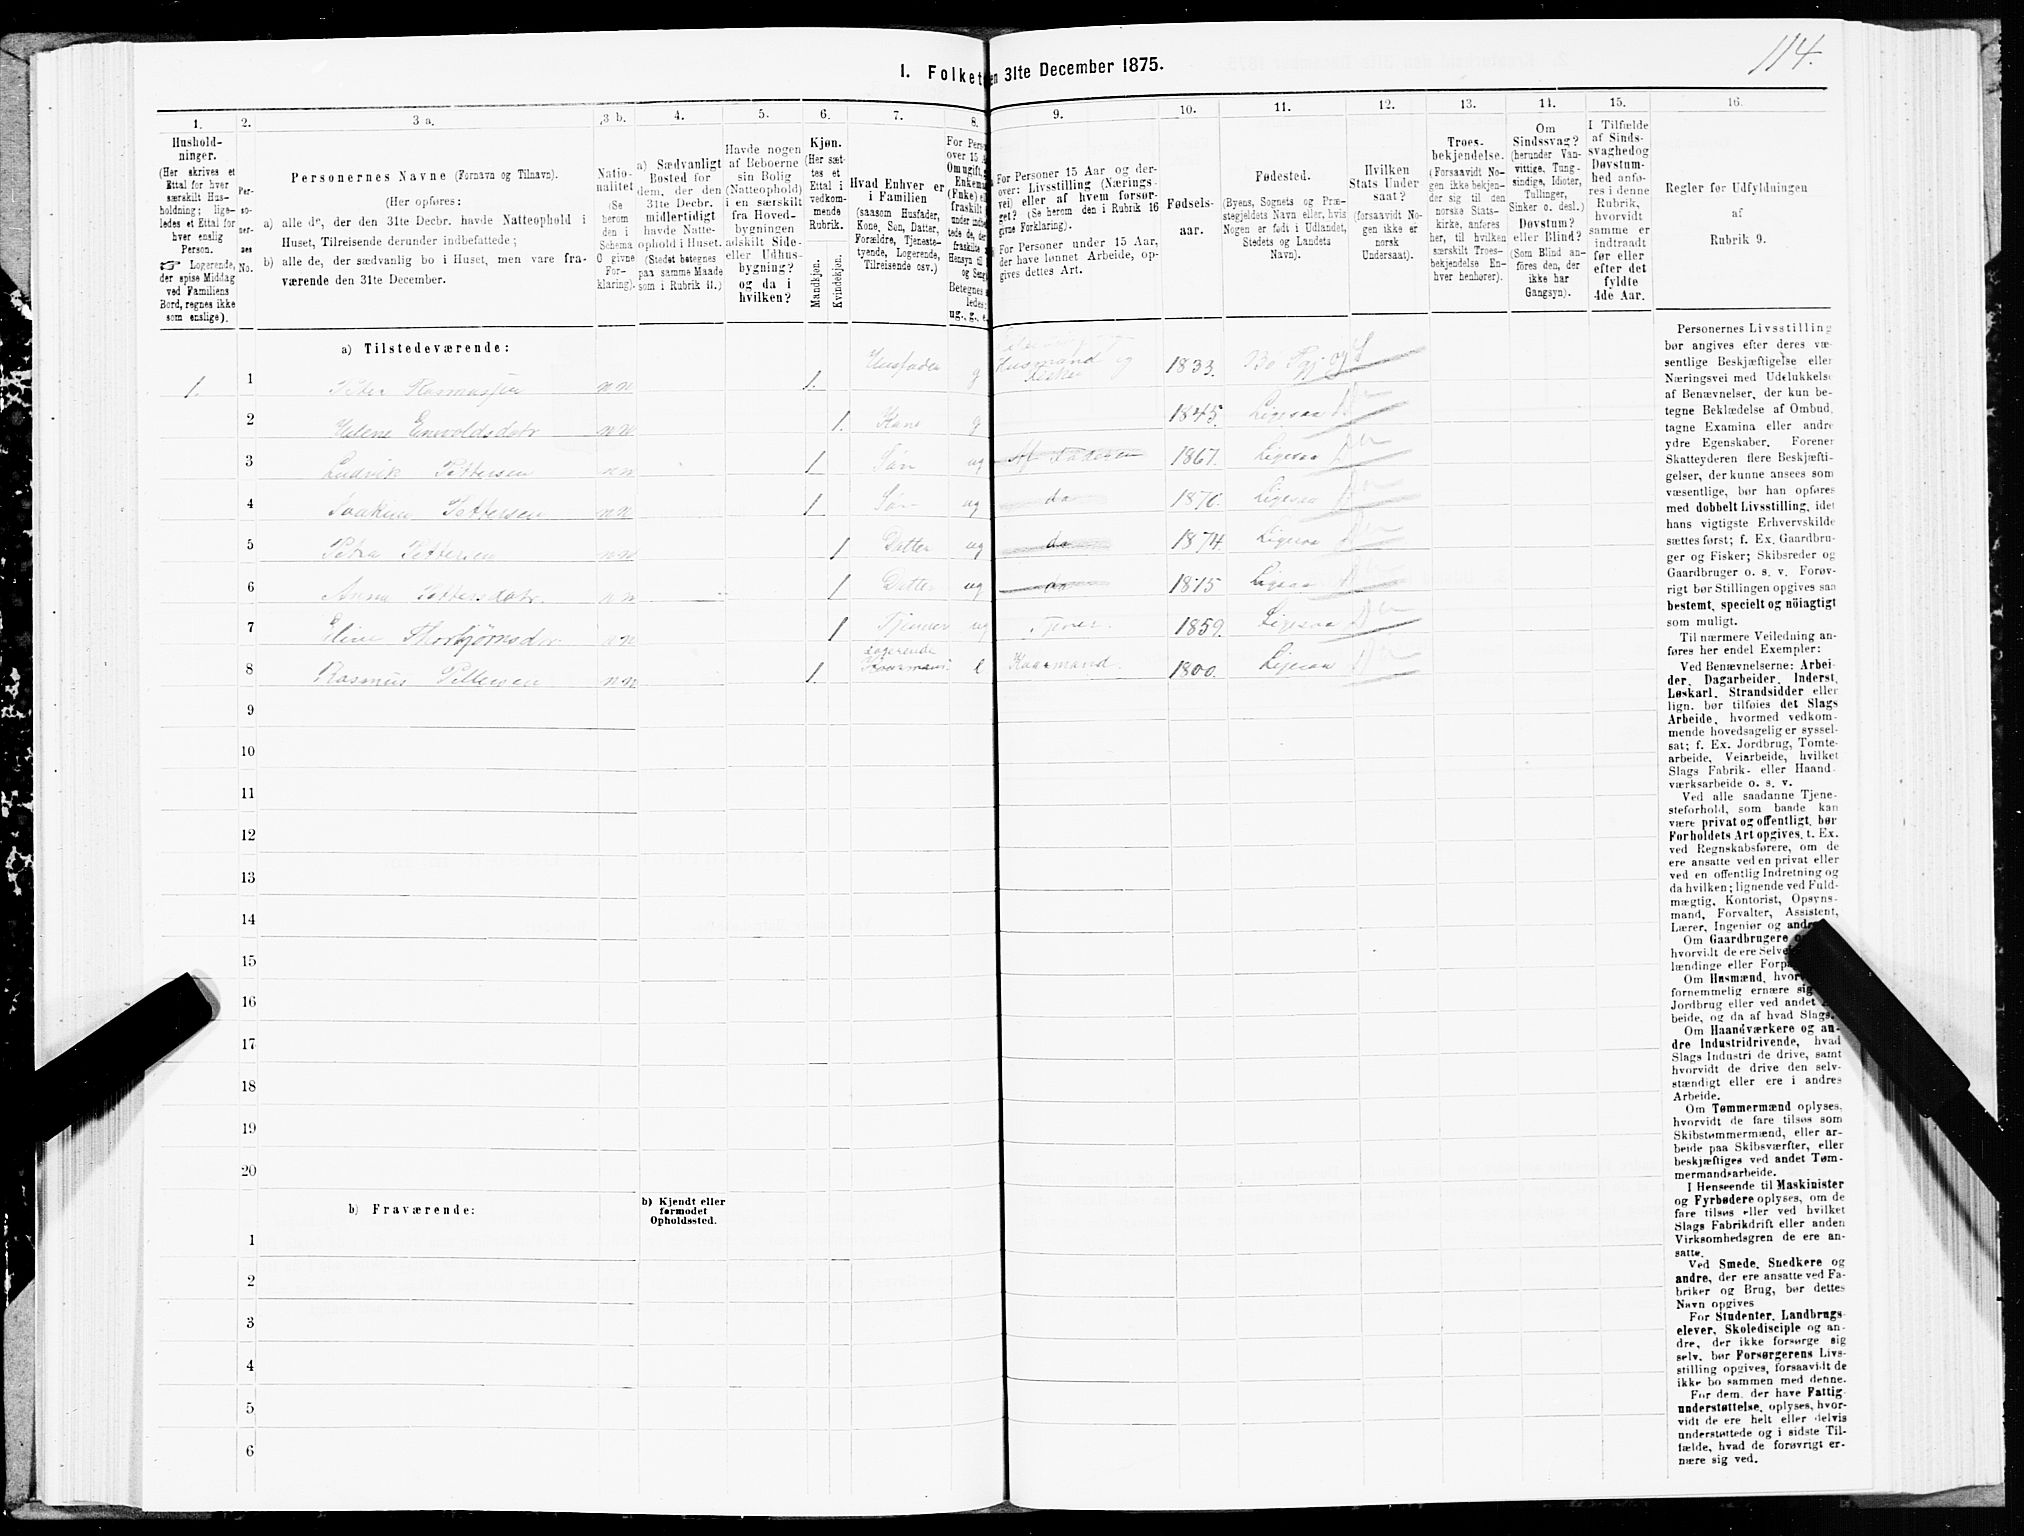 114.
1. Folket
en 31te December 1875.
1.
Hushold-
ninger.
(Her skrives et
Ettal for hver
særskilt Hus-
holdning; lige-
ledes et Ettal for
hver enslig
Person.
☞ Logerende,
der spise Middag
ved Familiens
Bord, regnes ikke
som enslige).
2.
Per-
so-
ner-
nes
No.
3 a.
Personernes Navne (Fornavn og Tilnavn).
(Her opføres:
a) alle de, der den 31te Decbr. havde Natteophold i
Huset, Tilreisende derunder indbefattede;
b) alle de, der sædvanlig bo i Huset, men vare fra-
værende den 31te December.
3 b.
Natio-
nalitet
(Se
herom
den i
Schema
O givne
For-
klaring).
4.
a) Sædvanligt
Bosted for
dem, der den
31te Decbr.
midlertidigt
havde Natte-
ophold i Huset.
(Stedet betegnes
paa samme Maade
som i Rubrik 11.)
5.
Havde nogen
af Beboerne
sin Bolig
(Natteophold)
i en særskilt
fra Hoved-
bygningen
adskilt Side-
eller Udhus-
bygning?
og da i
hvilken?
6.
Kjøn.
(Her sæt-
tes et
Ettal i
vedkom-
mende
Rubrik.
Mandkjøn.
Kvindekjøn.
7.
Hvad Enhver er
i Familien
(saasom Husfader,
Kone, Søn, Datter,
Forældre, Tjeneste-
tyende, Logerende,
Tilreisende osv.)
8.
For Pers
over 15 A
Om ugift,
Enkem
(Fnke) e
fraskilt
under indbe
tede de, de
fraskilte
Hensyn til
og Seng
Betegnes
ledes:
ug., g., e
9.
For Personer 15 Aar og der-
over: Livsstilling (Nærings-
vei) eller af hvem forsør-
get? (Se herom den i Rubrik 16
givne Forklaring).
For Personer under 15 Aar,
der have lønnet Arbeide, op-
gives dettes Art.
10.
Fødsels-
aar.
11.
Fødested.
(Byens, Sognets og Præ-
stegjeldets Navn eller, hvis
Nogen er født i Udlandet,
Stedets og Landets
Navn).
12.
Hvilken
Stats Under
saat?
(forsaavidt No-
gen ikke er
norsk
Undersaat).
13.
Troes-
bekjendelse.
(Forsaavidt No-
gen ikke bekjen-
der sig til den
norske Stats-
kirke, anføres
her, til hvilken
særskilt Troes-
bekjendelse En-
hver henhører).
14.
Om
Sindssvag?
(herunder Van-
vittige, Tung-
sindige, Idioter,
Tullinger,
Sinker o. desl.)
Døvstum?
eller Blind?
(Som Blind an-
føres den, der
ikke har
Gangsyn).
15.
I Tilfælde
af Sinds-
svaghed og
Døvstum-
hed anfø-
res i denne
Rubrik,
hvorvidt
samme er
indtraadt
før eller
efter det
fyldte
4de Aar.
16.
Regler før Udfyldningen
af
Rubrik 9.
a) Tilstedeværende:
1. 1 Peter Rasmussen nn 1. Husfader g Husmand og Fisker 1833. Bo
2 Helene Enevoldsdatr nn 1. Kone g 1845. Ligesaa
3 Ludvik Pettersen nn 1 Søn ug Af Faderen 1867. Ligesaa
4 Joakim Pettersen nn 1 Søn ug do 1870. Ligesaa
5 Petra Pettersen nn 1 Datter ug do 1874. Ligesaa
6 Anna Pettersdatr. nn 1 Datter ug do 1875 Ligesaa
7 Eline Thorbjørnsdr nn 1 Tjener ug Tjener 1859. Ligesaa
8 Rasmus Pettersen nn 1. Logerende Kaarmand e Kaarmand. 1800. Ligesaa
9
10
11
12
13
14
15
16
17
18
19
20
b) Fraværende:
b) Kjendt eller
formodet
Opholdssted.
1
2
3
4
5
6
Personernes Livsstilling
bør angives efter deres væ-
sentlige Beskjæftigelse eller
Næringsvei med Udelukkelse
af Benævnelser, der kun be-
tegne Beklædelse af Ombud,
tagne Examina eller andre
ydre Egenskaber. Forener
Skatteyderen flere Beskjæfti-
gelser, der kunne ansees som
væsentlige, bør han opføres
med dobbelt Livsstilling, idet
hans vigtigste Erhvervskilde
sættes først; f. Ex. Gaardbru-
ger og Fisker; Skibsreder og
Gaardbruger o. s. v. Forøv-
rigt bør Stillingen opgives saa
bestemt, specielt og nöiagtigt
som muligt.
Til nærmere Veiledning an-
føres her endel Exempler:
Ved Benævnelserne: Arbei-
der, Dagarbeider, Inderst,
Løskarl, Strandsidder eller
lign. bør tilføies det Slags
Arbeide, hvormed vedkom-
mende hovedsagelig er syssel-
sat; f. Ex. Jordbrug, Tomte-
arbeide, Veiarbeide, hvilket
Slags Fabrik- eller Haand-
værksarbeide o. s. v.
Ved alle saadanne Tjene-
steforhold, som baade kan
være privat og offentligt, bør
Forholdets Art opgives, t. Ex.
ved Regnskabsførere, om de
ere ansatte ved en privat eller
ved en offentlig Indretning og
da hvilken; lignende ved Fuld-
mægtig, Kontorist, Opsyns-
mand, Forvalter, Assistent,
Lærer, Ingeniør og andre
Om Gaardbrugere
hvorvidt de ere Selve
lændinge eller Forp
Om Husmænd, hvor
fornemmelig ernære sig
Jordbrug eller ved andet
beide, og da af hvad Slags.
Om Haandværkere og an-
dre Industridrivende, hvad
Slags Industri de drive, samt
hvorvidt de drive den selv-
stændigt eller ere i andres
Arbeide.
Om Tømmermænd oplyses,
hvorvidt de fare tilsøs som
Skibstømmermænd, eller ar-
beide paa Skibsværfter, eller
beskjæftiges ved andet Tøm-
mermandsarbeide.
I Henseende til Maskinister
og Fyrbødere oplyses, om de
fare tilsøs eller ved hvilket
Slags Fabrikdrift eller anden
Virksomhedsgren de ere an-
satte.
Ved Smede, Snedkere og
andre, der ere ansatte ved Fa-
briker og Brug, bør dettes
Navn opgives
For Studenter, Landbrugs-
elever, Skoledisciple og an-
dre, der ikke forsørge sig
selv, bør Forsørgerens Livs-
stilling opgives, forsaavidt de
ikke bo sammen med denne.
For dem, der have Fattig-
understøttelse, oplyses, hvor-
vidt de ere helt eller delvis
understøttede og i sidste Til-
fælde, hvad de forøvrigt er-
nære sig ved.